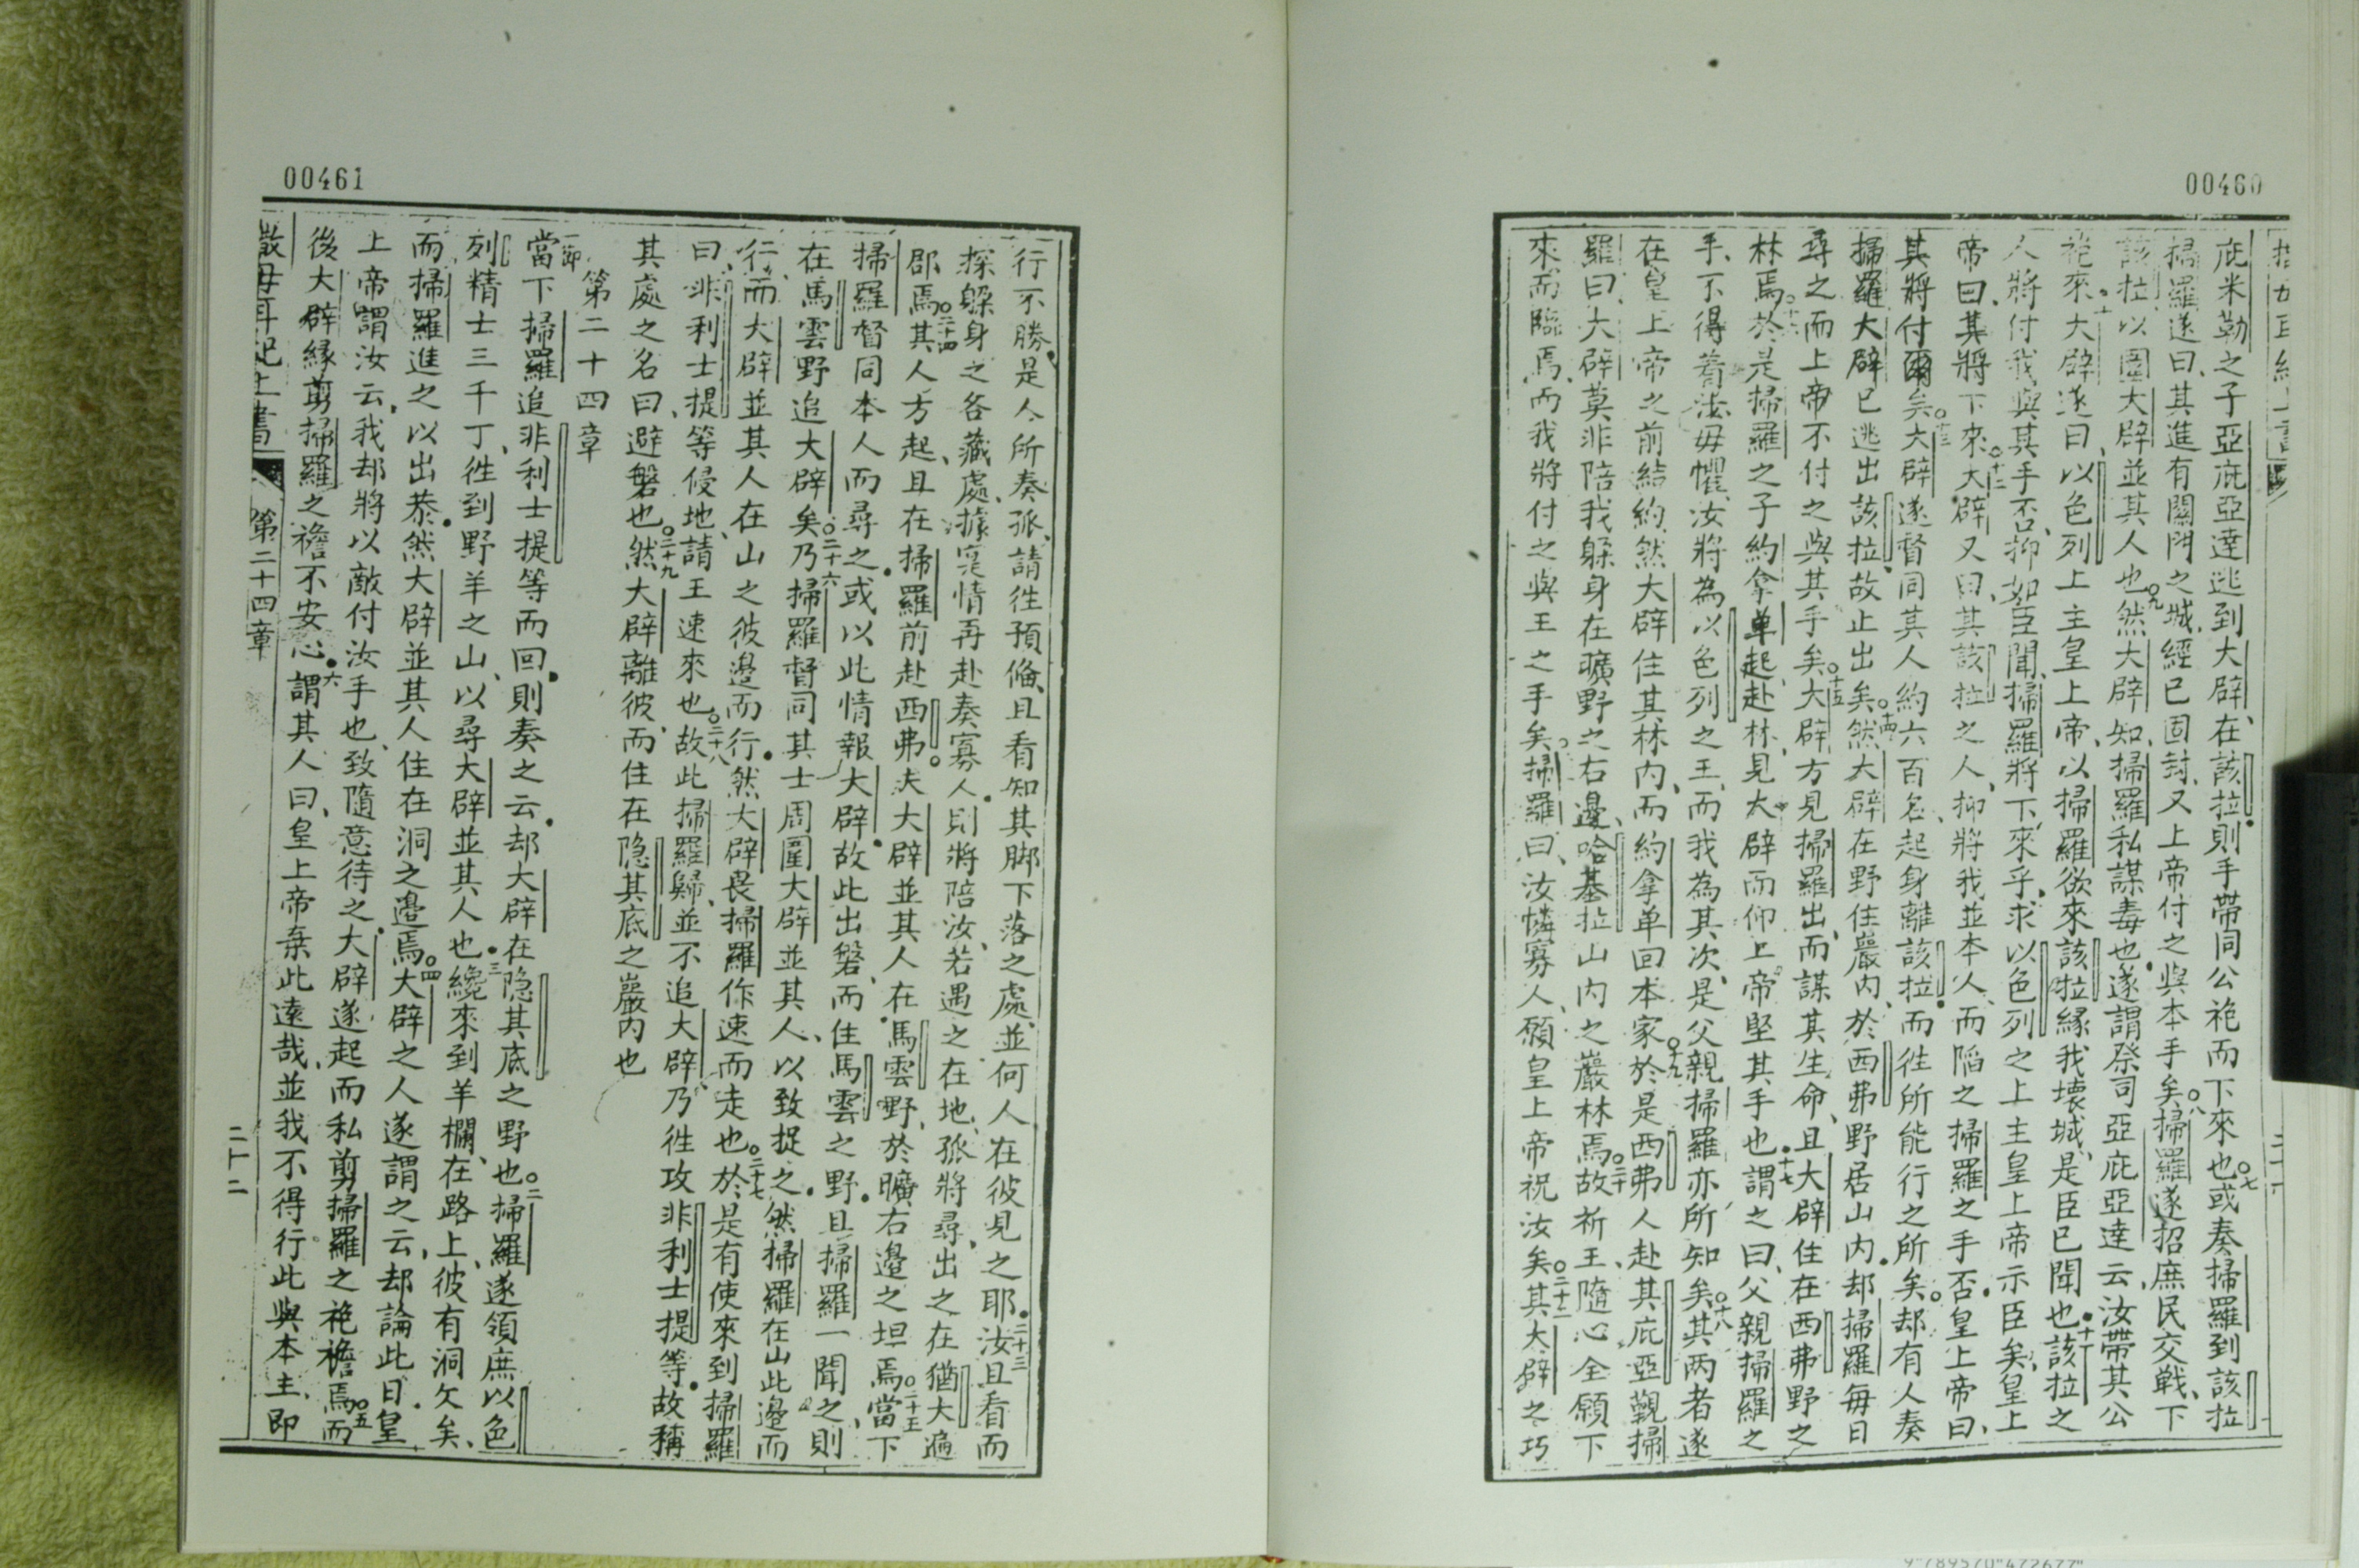 00460
庇米勒之子亞庇亞達逃到大辟、在該拉則手帶同公袍而下來也○七或奏掃羅到該拉
掃羅遂曰、其進有關門之城、經已固封、又上帝付之與本手矣○八掃羅遂招庶民交戰、下
該拉以圍大辟並其人也○九然大辟知掃羅私謀毒也、遂謂祭司亞庇亞達云、汝帶其公
袍來十大辟遂曰、以色列上主皇上帝、以掃羅欲來該拉緣我壞城、是臣已聞也十一該拉之
人將付我與其手否、抑如臣聞、掃羅將下來乎、求以色列之上主皇上帝示臣矣、皇上
帝曰、其將下來○十二大辟又曰、其該拉之人、抑將我並本人、而陷之掃羅之手否、皇上帝曰、
其將付爾矣○十三大辟遂督同其人約六百名、起身離該拉、而往所能行之所矣、却有人奏
掃羅大辟已逃出該拉、故止出矣○十四然大辟在野住巖內、於西弗野居山內、却掃羅每日
尋之而上帝不付之與其手矣○十五大辟方見掃羅出、而謀其生命、且大辟住在西弗野之
林焉○十六於是掃羅之子約拿单起、赴林、見大辟而仰上帝堅其手也十七謂之曰、父親掃羅之
手、不得着汝、毋懼、汝將為以色列之王、而我為其次、是父親掃羅亦所知矣○十八其两者遂
在皇上帝之前結約、然大辟住其林內、而約拿单回本家○十九於是西弗人赴其庇亞觐掃
羅曰、大辟莫非陪我躲身在曠野之右邊、哈基拉山內之巖林焉○二十故祈王、隨心全願下
來、而臨焉、而我將付之與王之手矣○掃羅曰、汝憐寡人、願皇上帝祝汝矣○二十二其大辟之巧
00461
行不勝、是人所奏孤、請往預俻、且看知其脚下落之處、並何人在彼見之耶二十三汝且看而
探躲身之各藏處、據寔情再赴奏寡人、則將陪汝、若遇之在地、孤將尋出之在猶大遍
郡焉○二十四其人方起、且在掃羅前赴西弗。夫大辟並其人在馬雲野、於曠右邊之坦焉○二十五當下
掃羅督同本人而尋之、或以此情報大辟、故此出磐、而住馬雲之野、且掃羅一聞之、則
在馬雲野追大辟矣○二十六乃掃羅督同其士周圍大辟並其人、以致捉之、然掃羅在山此邊而
行、而大辟並其人在山之彼邊而行、然大辟畏掃羅作速而走也○二十七於是有使來到掃羅
曰、非利士提等侵地、請王速來也○二十八故此掃羅歸、並不追大辟、乃往攻非利士提等、故稱
其處之名曰、避磐也○二十九然大辟離彼、而住在隐其底之巖內也
第二十四章
一節當下掃羅追非利士提等而回、則奏之云、却大辟在隐其底之野也○二掃羅遂領庶以色
列精士三千丁、往到野羊之山、以尋大辟並其人也三纔來到羊欄、在路上、彼有洞欠矣、
而掃羅進之以出恭、然大辟並其人住在洞之邊焉○四大辟之人遂謂之云、却論此日、皇
上帝謂汝云、我却將以敵付汝手也、致隨意待之、大辟遂起而私剪掃羅之袍襜焉○五而
後大辟緣剪掃羅之襜不安心六謂其人曰、皇上帝棄此遠哉、並我不得行此與本主、即
撒母耳記上書 第二十四章 二十二